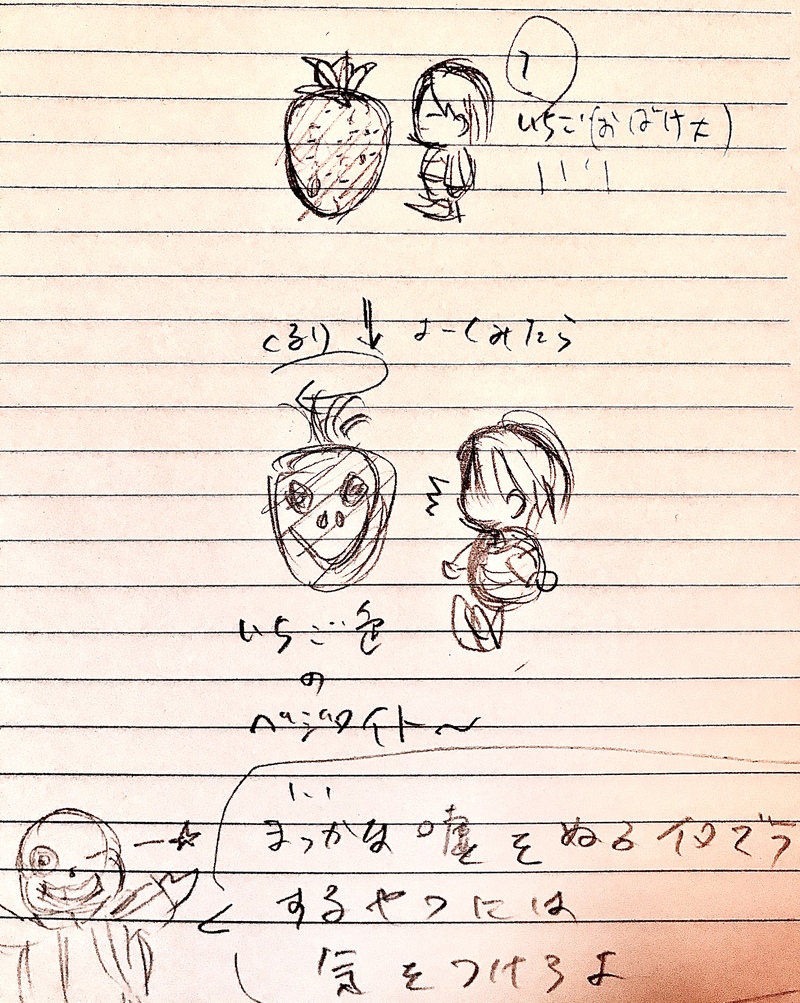 いちご(おばけ大)
くるり
よーくみたら
いちご色
の
ベジワイト〜
まっかな嘘をぬる
するやつには
気をつけろよ